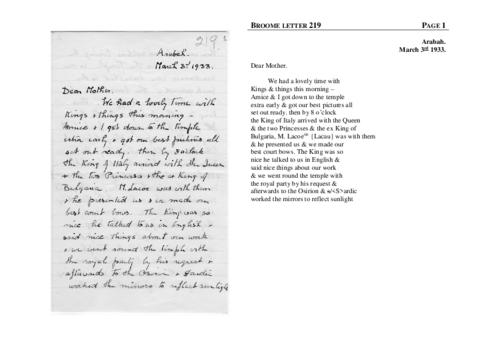 219.
Arabah.
March 3rd 1933.
Dear Mother.
We had a lovely time with
Kings & things this morning –
Amice & I got down to the temple
extra early & got our best pictures all
set out ready. then by 8 o'clock
the King of Italy arrived with the Queen
& the two Princesses & the ex King of
Bulgaria. M. Lacoe was with them
& he presented us & we made our
best court bows. The King was so
nice he talked to us in English &
said nice things about our work
& we went round the temple with
the royal party by his request &
afterwards to the Osirion & Sardic
worked the mirrors to reflect sunlight
BROOME LETTER 219 PAGE 1
Arabah.
March 3rd 1933.
Dear Mother.
We had a lovely time with
Kings & things this morning –
Amice & I got down to the temple
extra early & got our best pictures all
set out ready, then by 8 o'clock
the King of Italy arrived with the Queen
& the two Princesses & the ex King of
Bulgaria, M. Lacoe [Lacau] was with them
& he presented us & we made our
best court bows. The King was so
nice he talked to us in English &
said nice things about our work
& we went round the temple with
the royal party by his request &
afterwards to the Osirion & w\<S>ardic
worked the mirrors to reflect sunlight